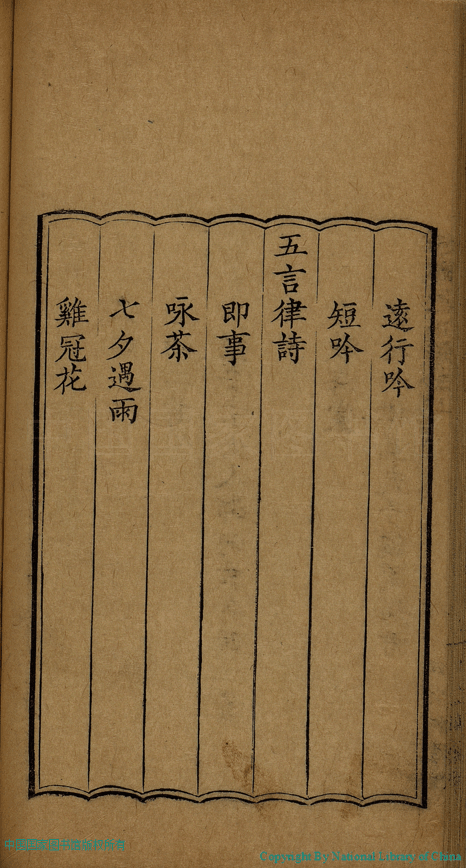 遠行吟
短吟
五言律詩
即事
咏茶
七夕遇雨
雞冠花
Copyright By National Library of China